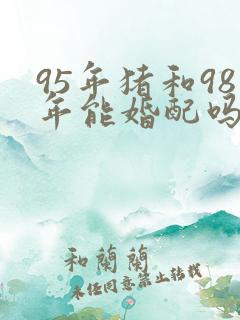 95年猪和98
年能婚配吗
和兰兰
未经同意禁止转载